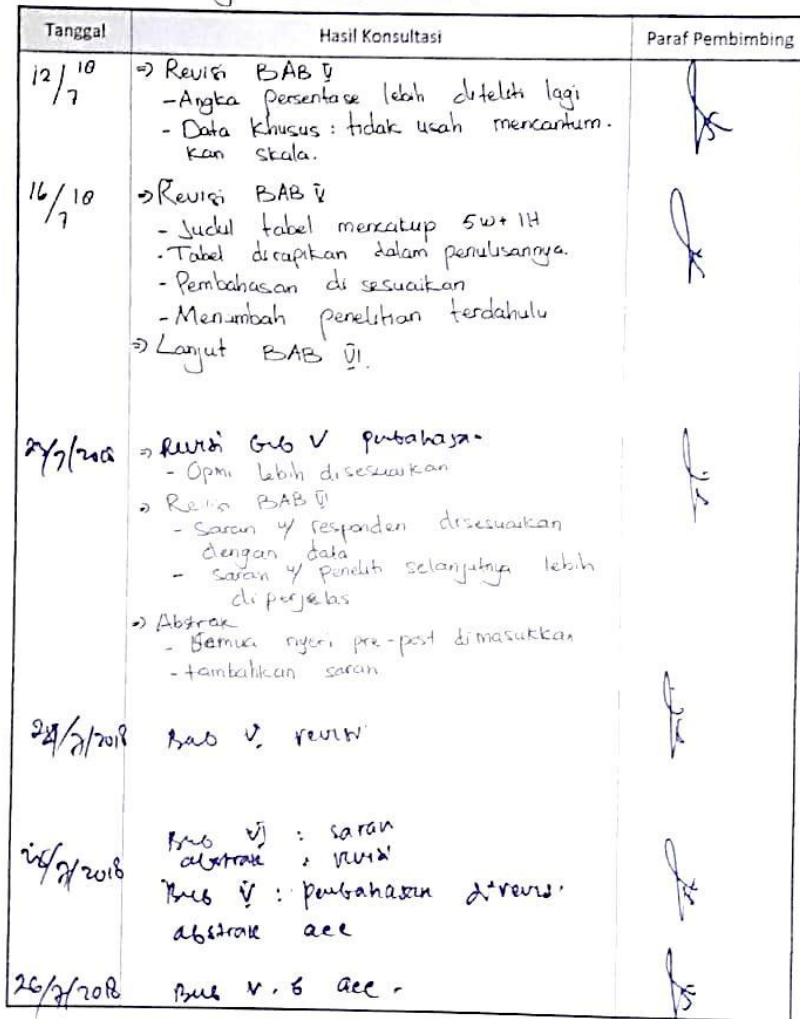 Tanggal Hasil Konsultasi Paraf Pembimbing
12/7 18 => Revisi BAB V
- Angka persentase lebih diteliti lagi
- Data khusus : tidak usah mencantum-
kan skala.
16/7 18 => Revisi BAB V
- Judul tabel mencakup 5W+ 1H
- Tabel dirapikan dalam penulisannya.
- Pembahasan di sesuaikan
- Menambah penelitian terdahulu
=> Lanjut BAB VI.
=> Revisi Bab V
- Opini lebih disesuaikan
=> BAB VI
- Saran u/ responden disesuaikan
dengan data
- saran u/ peneliti selanjutnya lebih
diperjelas
=> Abstrak
- Semua nyeri pre-post dimasukkan
- tambahkan saran
24/7/2018 Bab V. revisi
Bab VI : saran
abstrak : revisi
/7/2018 Bab V : pembahasan direvisi.
abstrak acc
26/7/2018 Bab V. 6 acc.